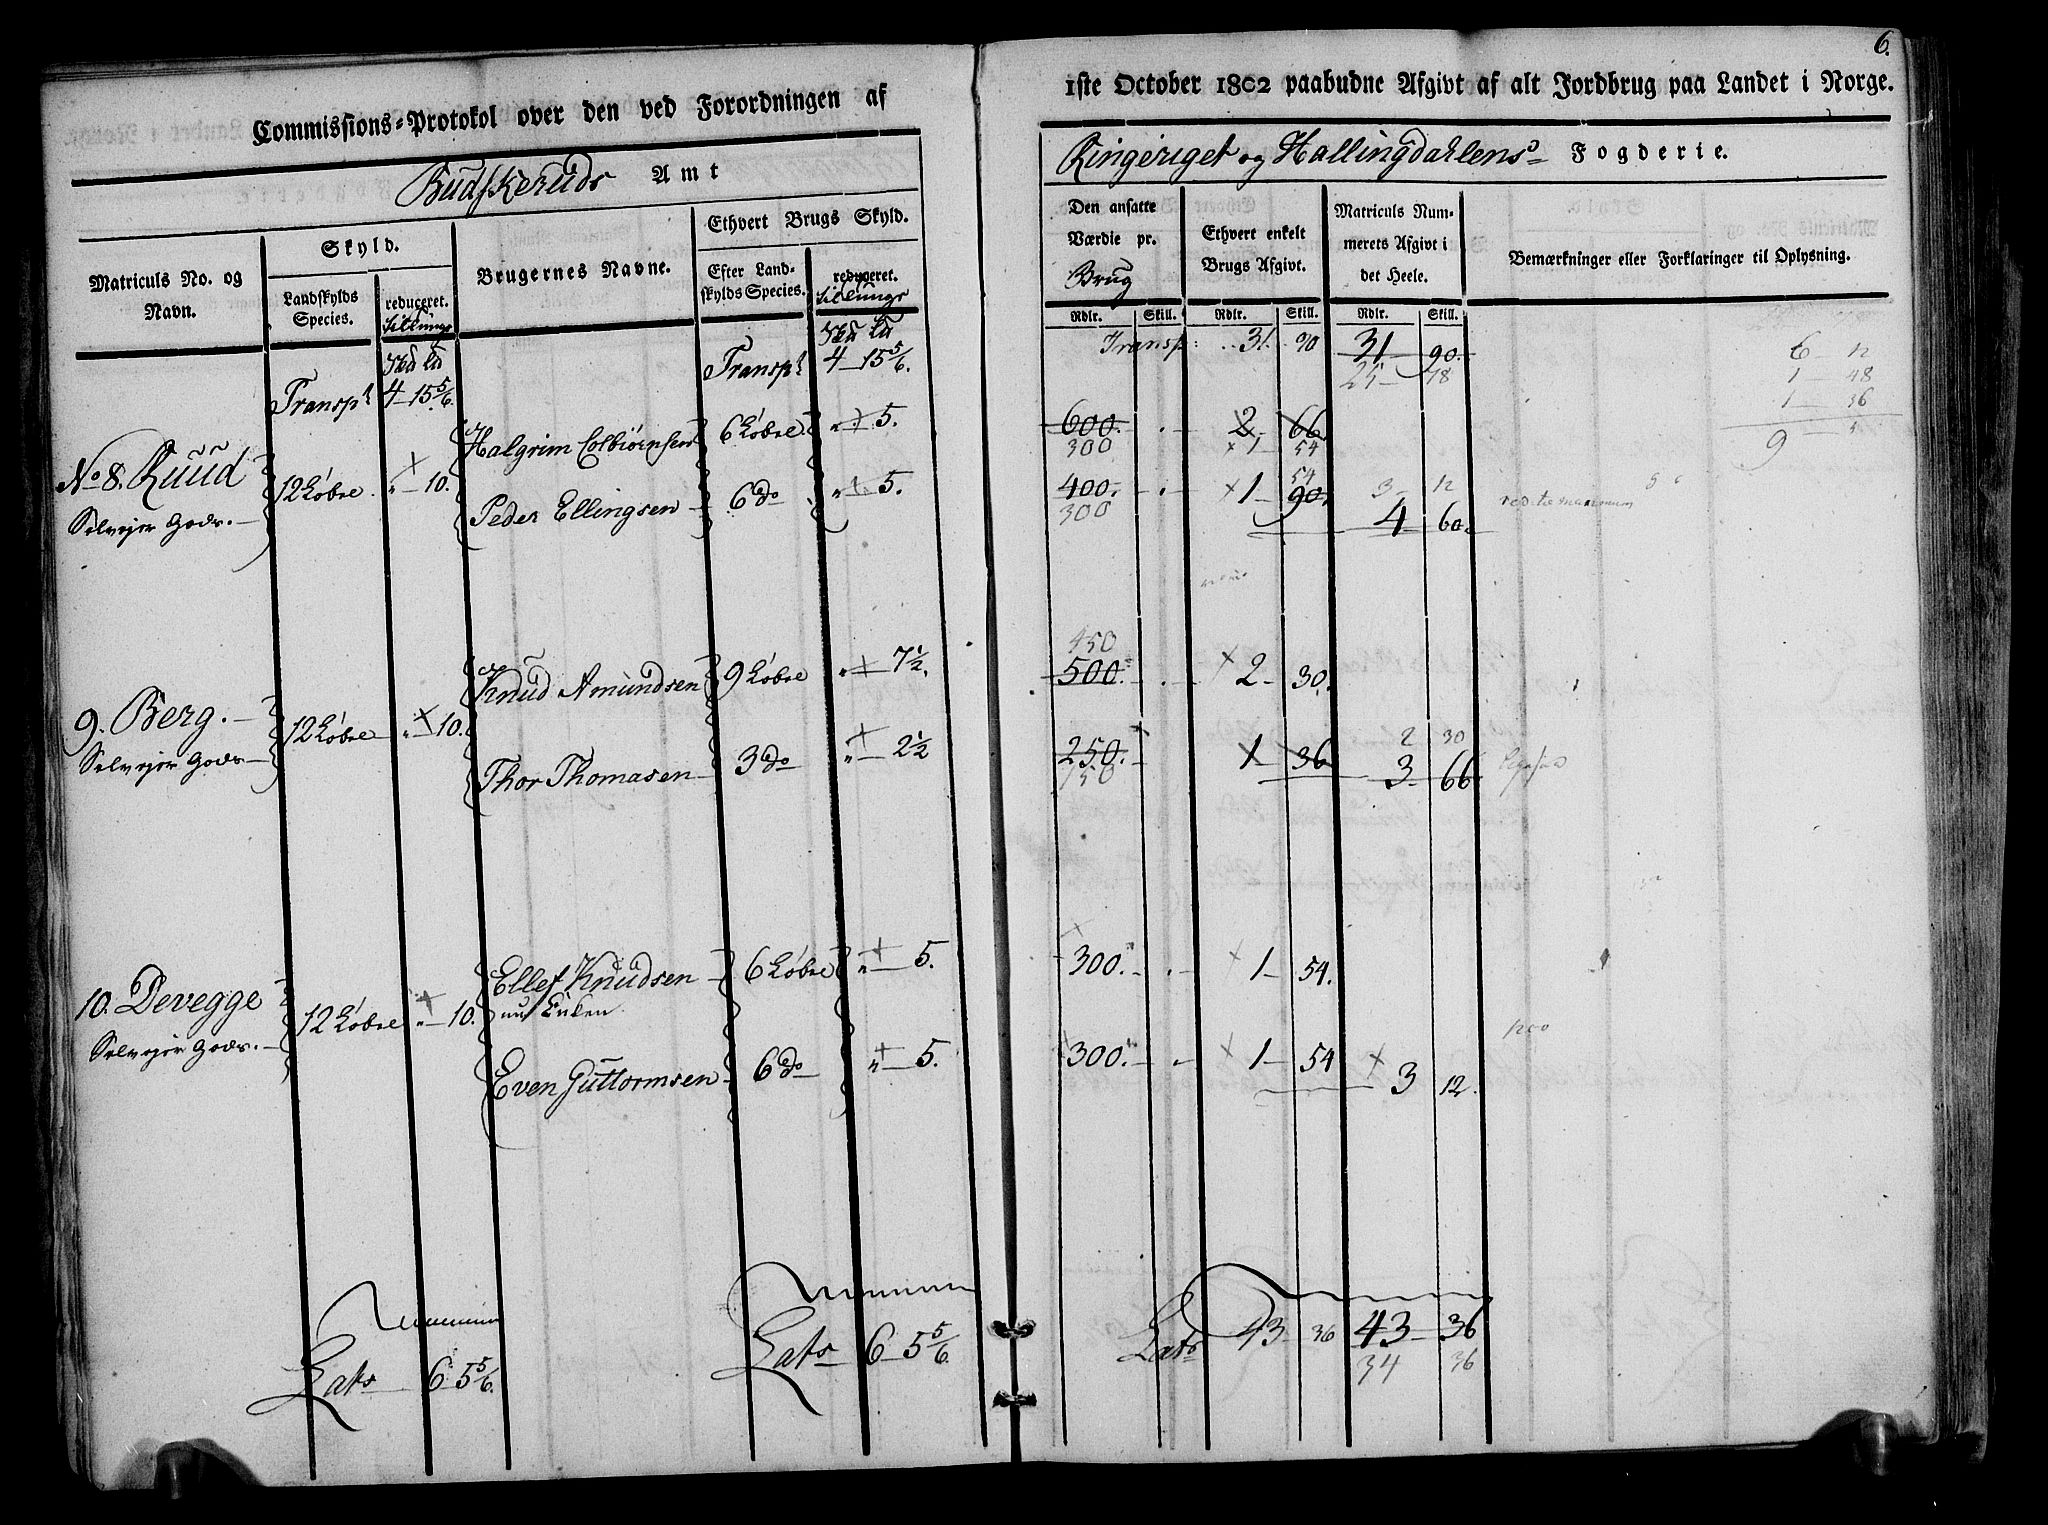 6.
Commissions-Protokol over den ved Forordningen af
1ste October 1802 paabudne Afgivt af alt Jordbrug paa Landet i Norge.
Budskeruds Amt
Ringeriget og Hallingdahlens Fogderie.
Matriculs No. og Navn.
Skyld.
Landskylds Species.
reduceret.
Brugernes Navne.
Ethvert Brugs Skyld.
Efter Landskylds Species.
reduceret.
Den ansatte Værdie pr. Brug
Ethvert enkelt Brugs Afgivt.
Matriculs Nummerets Afgivt i det Heele.
Bemærkninger eller Forklaringer til Oplysning.
Rdlr. Skill. Rdlr. Skill. Rdlr. Skill.
Transpt 4 15 5/6. Transpt 4 15 5/6. Transp: 31. 90 31 90.
25 18
6 12
1 48
1 36
9
No 8. Ruud
Selvejer Gods.
12 Løbse 10.
Halgrim Colbiørnsen 6 Løbse 5. 600. 2 66.
300 1 54
Peder Ellingsen 6 do 5. 400. 1 90.
300 54
3 12
4 60.
9. Berg.
Selvejer Gods
12 Løbse 10.
450
Knud Amundsen 9 Løbse 7 1/2. 500. 2 30.
Thor Thomasen 3 do 2 1/2 250. 1 36
150
2 30
3 66
10. Devegge
Selvejer Gods.
12 Løbse 10.
Ellef Knudsen 6 Løbse 5. 300. 1 54.
Even Guttormsen 6 do 5. 300. 1 54
3 12.
1200
Lats 6 5 5/6. Lats 6 5 5/6. Lats 43 36 43 36
34 36